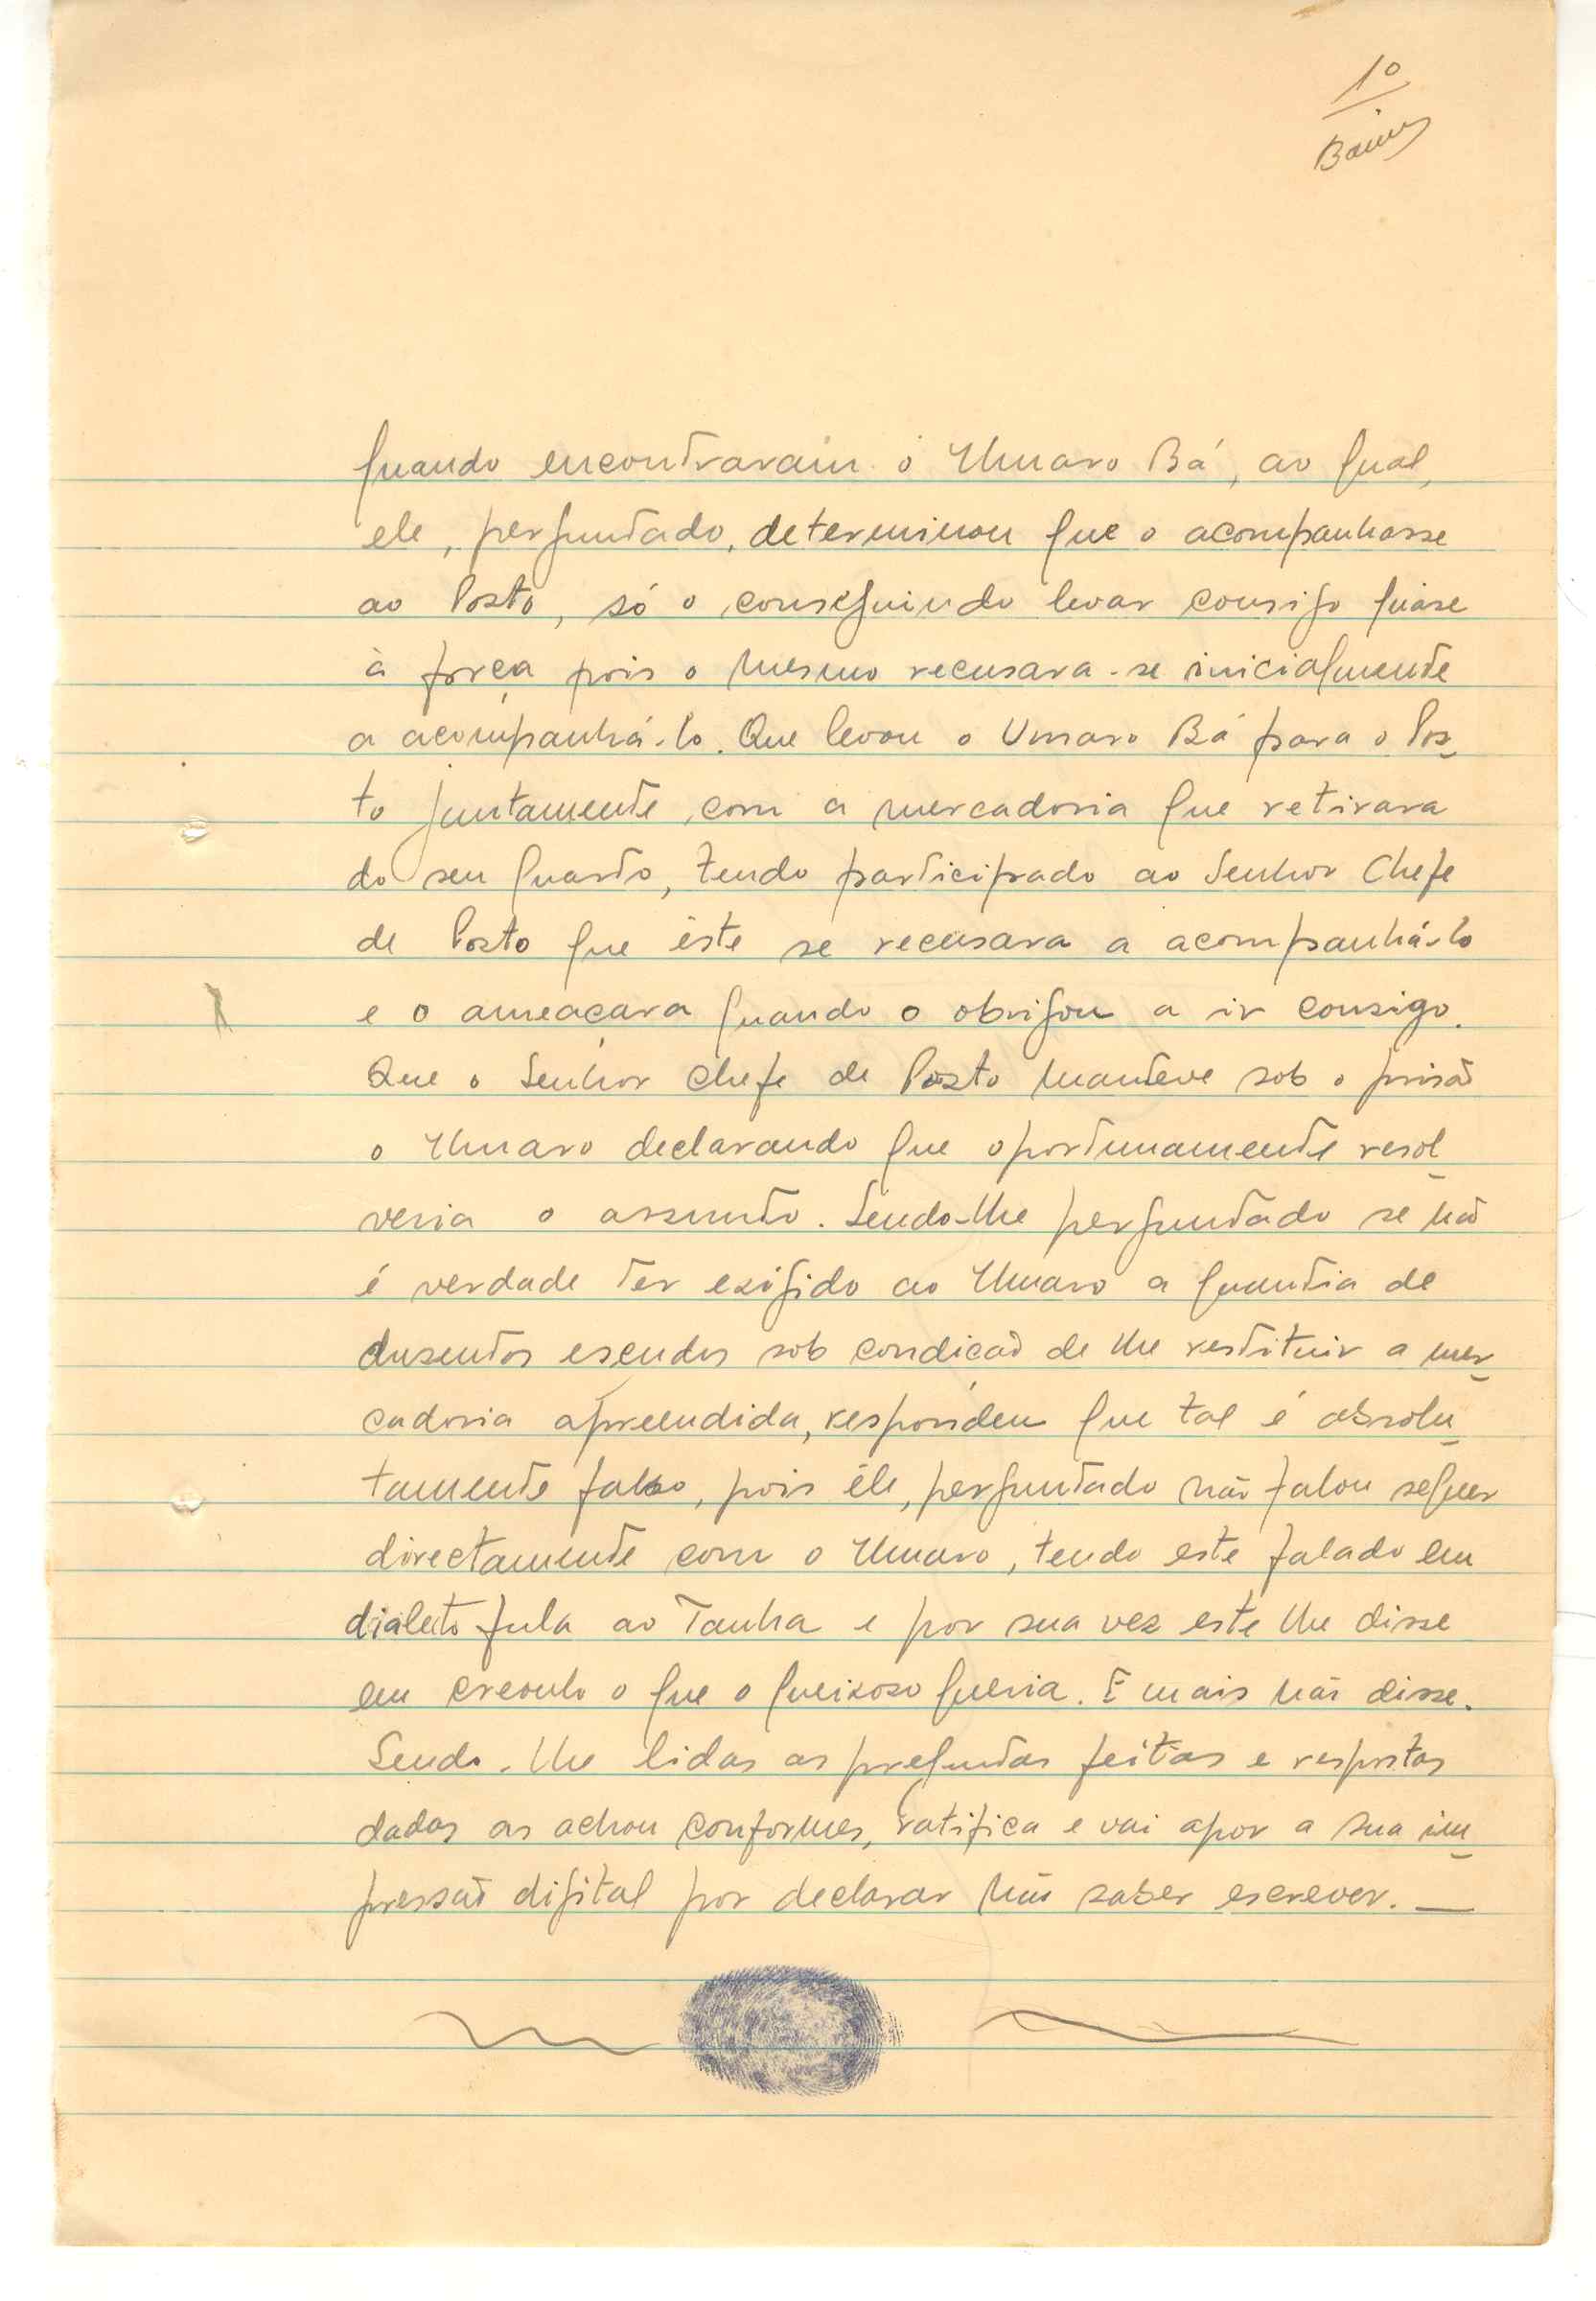 1º
quando encontraram o Umaro Bá, ao qual,
ele, perguntado, determinou que o acompanhasse
ao Posto, só o conseguindo levar consigo quase
à força pois o mesmo recusara-se inicialmente
a acompanhá-lo. Que levou o Umaro Bá para o Pos-
to juntamente com a mercadoria que retirara
do seu quarto, tendo participado ao Senhor Chefe
de Posto que êste se recusara a acompanhá-lo
e o ameaçara quando o obrigou a ir consigo.
Que o Senhor Chefe de Posto manteve sob o prisão
o Umaro declarando que oportunamente resol-
veria o assunto. Sendo-lhe perguntado se não
é verdade ter exigido ao Umaro a quantia de
dusentos escudos sob condição de lhe restituir a mer-
cadoria apreendida, respondeu que tal é absolu-
tamente falso, pois êle, perguntado não falou sequer
directamente com o Umaro, tendo este falado em
dialecto fula ao Tanha e por sua vez este lhe disse
em creoulo o que o queixoso queria. E mais não disse.
Sendo-lhe lidas as preguntas feitas e respostas
dadas as achou conformes, ratifica e vai apor a sua im-
pressão digital por declarar não saber escrever. —